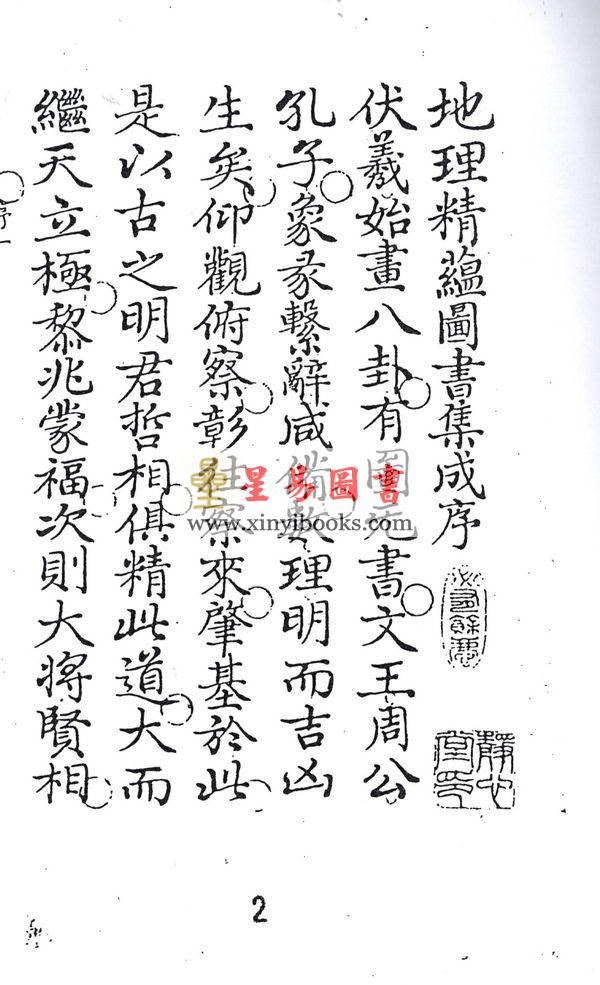 地理精蘊圖書集成序
伏羲始畫八卦有圖无書文王周公
孔子象彖繫辭咸備數理明而吉凶
生矣仰觀俯察彰往察來肇基於此
是以古之明君哲相俱精此道大而
繼天立極黎兆蒙福次則大將賢相
序一
星易圖書
www.xinyibooks.com
2